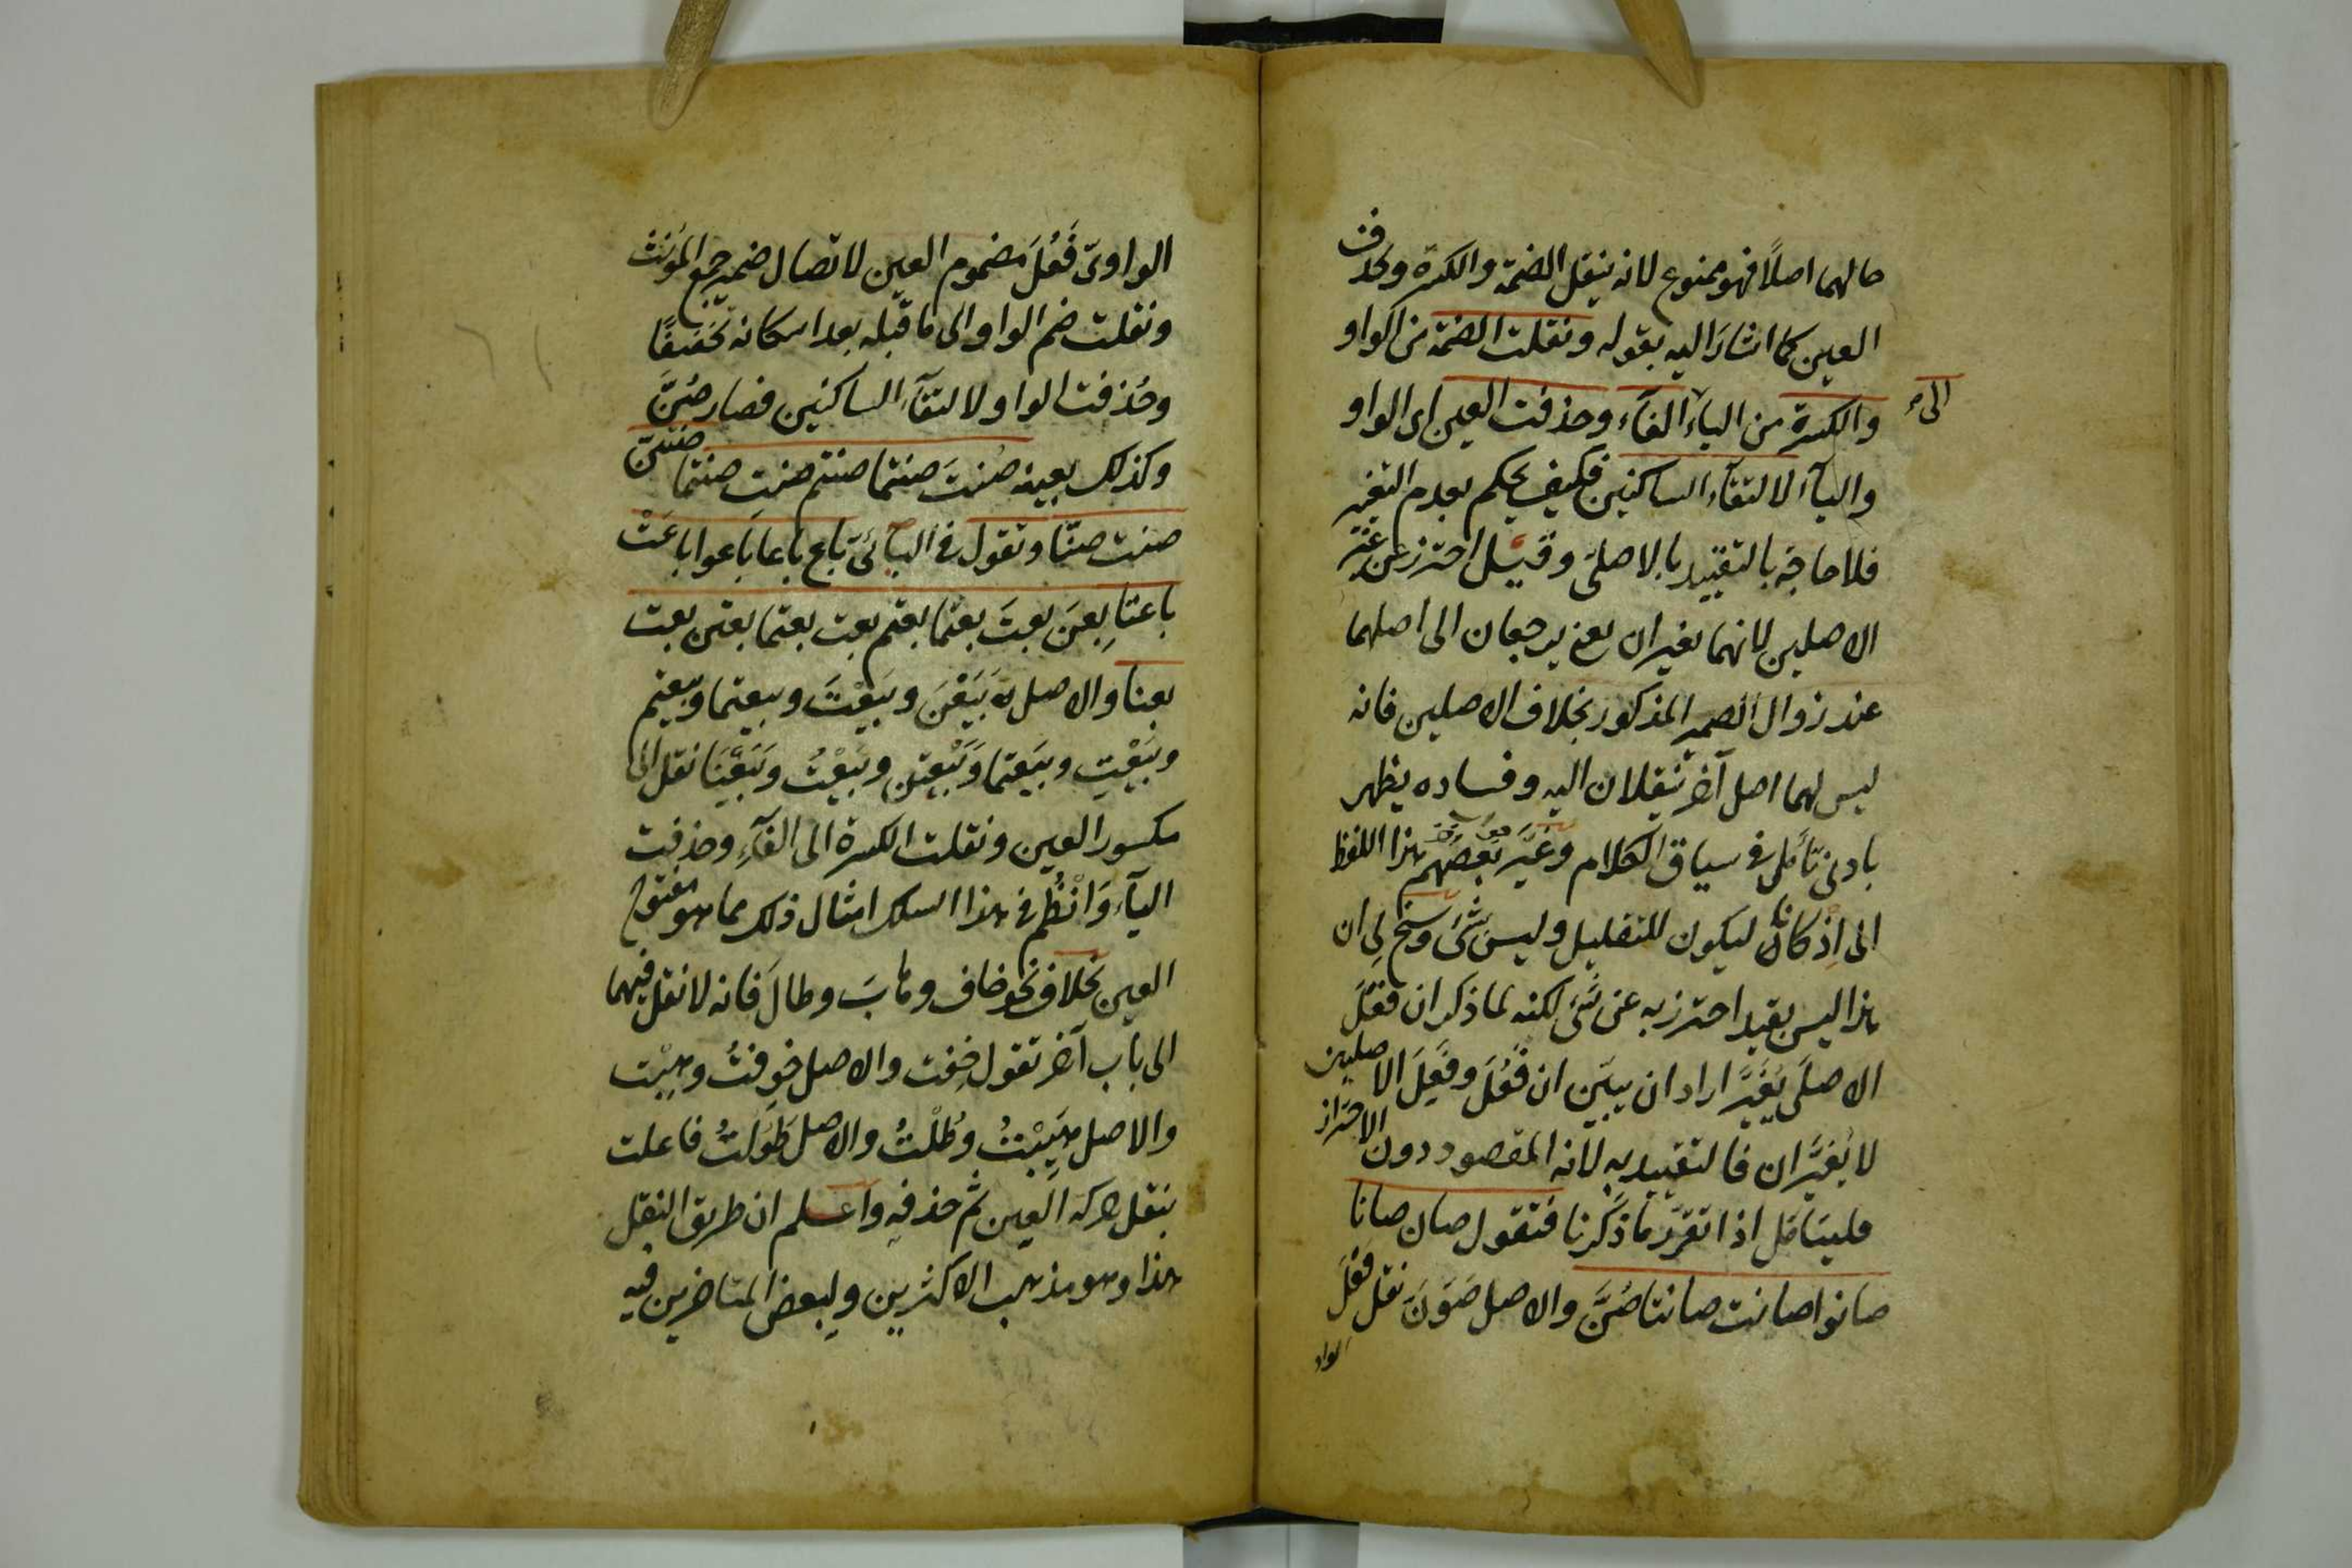 حالهما اصلًا فهو ممنوع لانه ينقل الضمة والكسرة وتحذف
العين كما اشارَ اليه بقوله ونقلت الضمة من الواو
والكسرة من الياء الى الفآء وحذفت العين اى الواو
والياء لالتقآء الساكنين فكيف يحكم بعدم التغير
فلا حاجة بالتقييد بالاصلى وقيل احترز عن غير
الاصليين لانهما يغيران يعنى يرجعان الى اصلهما
عند زوال الضمير المذكور بخلاف الاصليين فانه
ليس لهما اصل آخر ينقلان اليه وفساده يظهر
بادنى تأمل فى سياق الكلام وغيَّر بعضهم هذا اللفظ
الى اِذ كانا ليكون للتعليل وليس بشئ وسنح لى ان
هذا ليس بقيد احترز به عن شئ لكنه لما ذكر ان فَعَلَ
الاصلى يُغيَّر اراد ان يبيّن ان فَعُلَ وفَعِلَ الاصليين
لا يُغيَّران فالتقييد به لانه المقصود دون الاحتراز
فليتأمل اذا تقرّر ما ذكرنا فتقول صان صانا
صانوا صانت صانتا صُنَّ والاصل صَوَنَ نقل فَعَلَ
الواو
الواوىّ فَعُلَ مضموم العين لاتصال ضمير جمع المؤنث
ونقلت ضم الواو الى ما قبله بعد اسكانه تخفيفًا
وحُذفت الواو لالتقآء الساكنين فصار صُنَّ
وكذلك بعينه صُنتَ صنتما صنتم صنتِ صنتما صنتنّ
صنت صنّا وتقول فى اليآئىّ باع باعا باعوا باعَتْ
باعتا بِعنَ بعتَ بعتما بعتم بعت بعتما بعتن بعت
بعنا والاصل بَيَعْنَ وبَيَعْتَ وبيعتما وبيعتم
وبَيَعْتِ وبيَعتما وبَيَعْتن وبَيَعْتُ وبَيَعْنَا نقل الى
مكسور العين ونقلت الكسرة الى الفآءِ وحذفت
اليآء وَانْظُم فى هذا السلك امثال ذلك مما هو مفتوح
العين بخلاف نحو خاف وهابَ وطالَ فانه لا نقل فيهما
الى باب آخر تقول خِفت والاصل خوِفتُ وهِبْت
والاصل هَيِبْتُ وطُلْتُ والاصل طَوُلتُ فاعلت
بنقل حركة العين ثم حذفه واعلم ان طريق النقل
هذا وهو مذهب الاكثرين ولبعض المتاخرين فيه